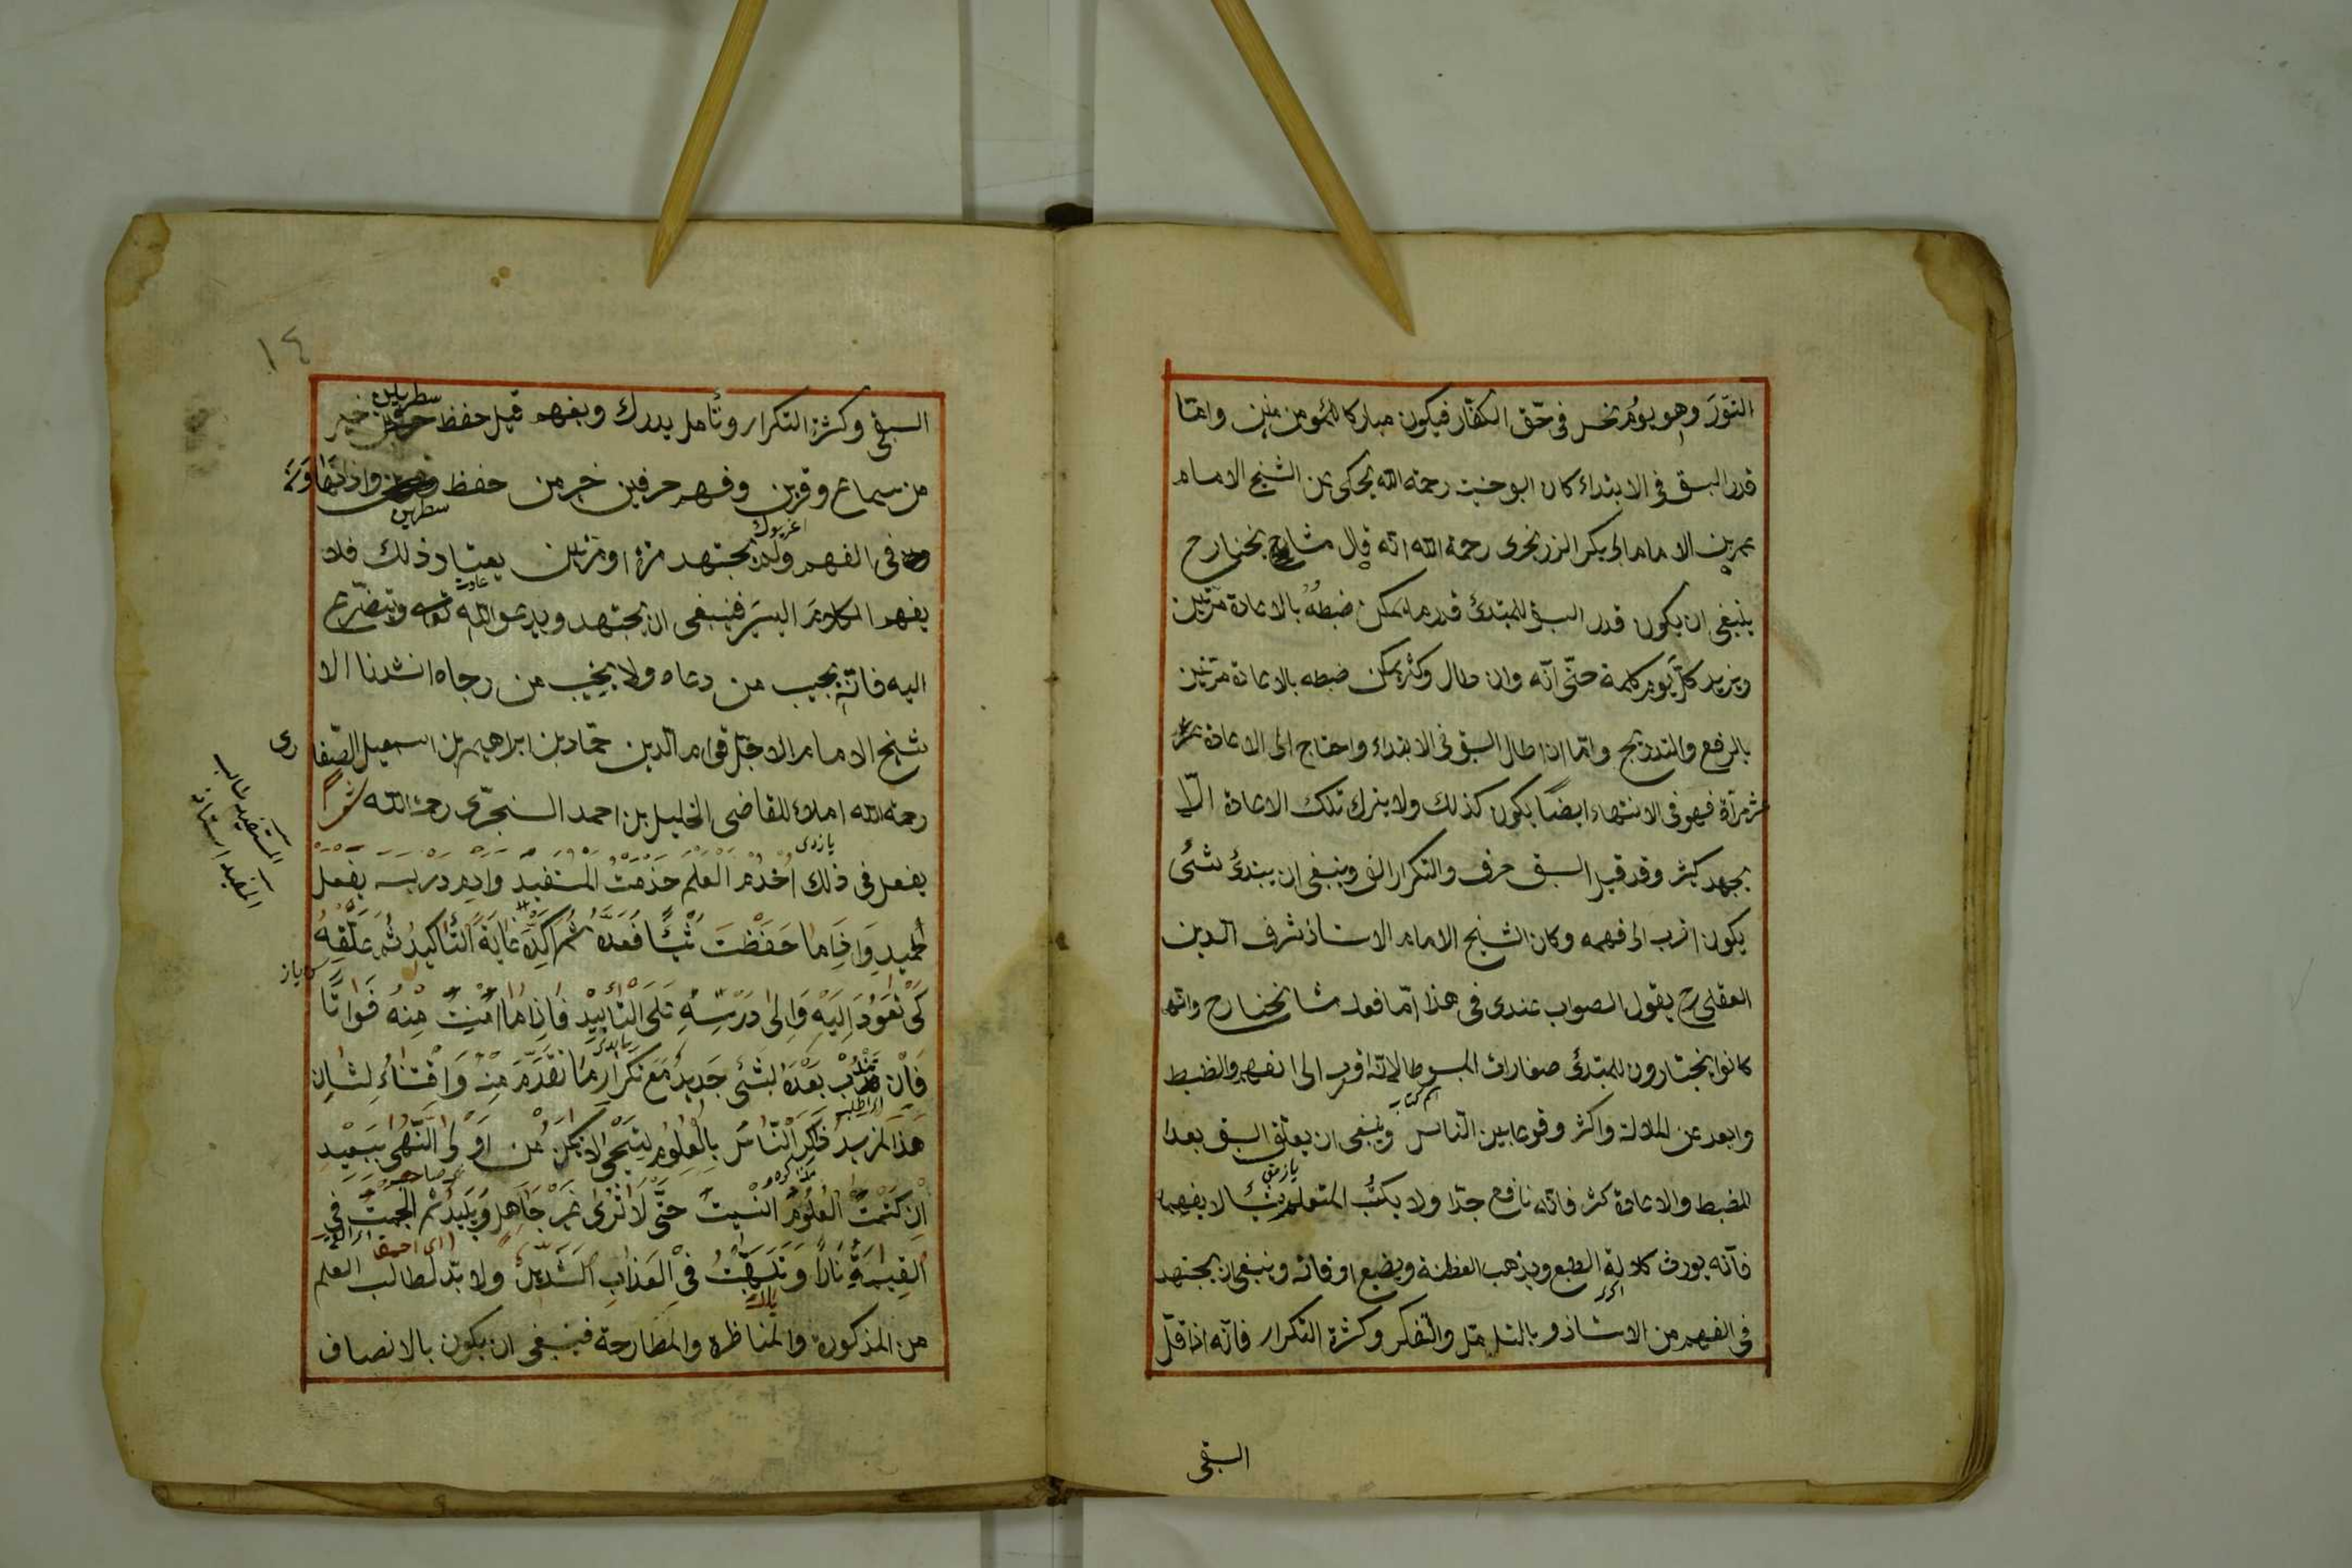 النّورَ وهو يوم نحس في حقّ الكفّار فيكون مباركا للمؤمنين وامّا
قدر السبق في الابتداء كان ابو حنيفة رحمة الله يحكى عن الشيخ الامام
عمر بن الامام ابى بكر الزرنجرى رحمة الله انه قال مشايخنا رح
ينبغى ان يكون قدر السبق للمبتدئ قدر ما يمكن ضبطه بالاعادة مرّتين
ويزيد كلّ يوم كلمة حتّى انّه وان طال وكثر يمكن ضبطه بالاعادة مرّتين
بالرفع والتدريج وامّا اذا طال السبق فى الابتداء واحتاج الى الاعادة عشر
عشر مرّة فهو فى الانتهاء ايضا يكون كذلك ولا يترك تلك الاعادة الّا
بجهد كثير وقد قيل السبق حرف والتكرار الف وينبغى ان يبتدئ بشئ
يكون اقرب الى فهمه وكان الشيخ الامام الاستاذ شرف الدين
العقلى رح يقول الصواب عندى فى هذا امّا فعله مشايخنا رح وانهم
كانوا يختارون للمبتدئ صغارات المبسوط لانّه اقرب الى الفهم والضبط
وابعد عن الملالة واكثر وقوعا بين النّاس وينبغى ان يعلّق السبق بعد
الضبط والاعادة كثر فانه نافع جدّا ولا يكتب المتعلم شئا لا يفهمه
فانّه يورث كلالة الطبع ويذهب الفطنة ويضيع اوقاته وينبغى ان يجتهد
فى الفهم من الاستاذ و بالتأمّل والتفكر وكثرة التكرار فانّه اذا قلّ
السبق
١٤
السبق وكثرة التكرار وتأمل يدرك ويفهم قيل حفظ حرفين خير
من سماع وقرين وفهم حرفين خير من حفظ وقرين واذا تهاون
سطرين
فى الفهم ولم يجتهد مرّة او مرّتين يعتاد ذلك فلا
يفهم الكلام اليسير فينبغى ان يجتهد ويدعو الله تعالى ويتضرّع
اليه فانّه يجيب من دعاه ولا يخيب من رجاه انشدنا الا
شيخ الامام الاجلّ قوام الدين حمّاد بن ابراهيم بن اسمعيل الصفا
رى
رحمة الله املاء للقاضى الخليل بن احمد السنجرّى رحمة الله شعرا
يفعل فى ذلك اُخْدُم الْعِلْمَ خدمت المستفيد وادم درسه بفعل
حميد وَاذَا ما حَفَظْتَ شَيْئًا فَعُدهُ ثُمَّ اَكِّدْهُ غَايَةَ التَّأكِيدِ ثُمَّ عَلِّقْهُ
كَىْ تَعُودَ اِلَيْهِ وَاِلىٰ دَرْسِهِ عَلَى التَّأبِيدْ فَاِذَا مَا اَمِنْتَ مِنْهُ فَوَاتًا
فَانْتَدِبْ بَعْدَهُ لِشَئٍ جَدِيدٍ مَعَ تَكْرَارِ مَا تَقَدَّمَ مِنْهُ وَاقْتِنَاءٍ لِشَانِ
هَذَا الْمَزِيد ذَاكِرِ النَّاسَ بِالْعُلُومِ لِتَحْىٰ لاتكُنْ مِنْ اُولِى النُّهىٰ بِبَعِيدِ
اِنْ كَتَمْتَ الْعُلُومَ اُنْسِيتَ حَتّٰى لَا تُرىٰ غَيْرَ جَاهِلٍ وَبَلِيدٍ ثُمَّ اُلْجِمْتَ فِى
الْقِيٰمَةِ نَارًا وَتَلَهَّبْتَ فِى الْعَذَابِ الشَّدِيدْ ولا بدّ لطالب العلم
من المذكورة والمناظرة والمطارحة فينبغى ان يكون بالانصاف